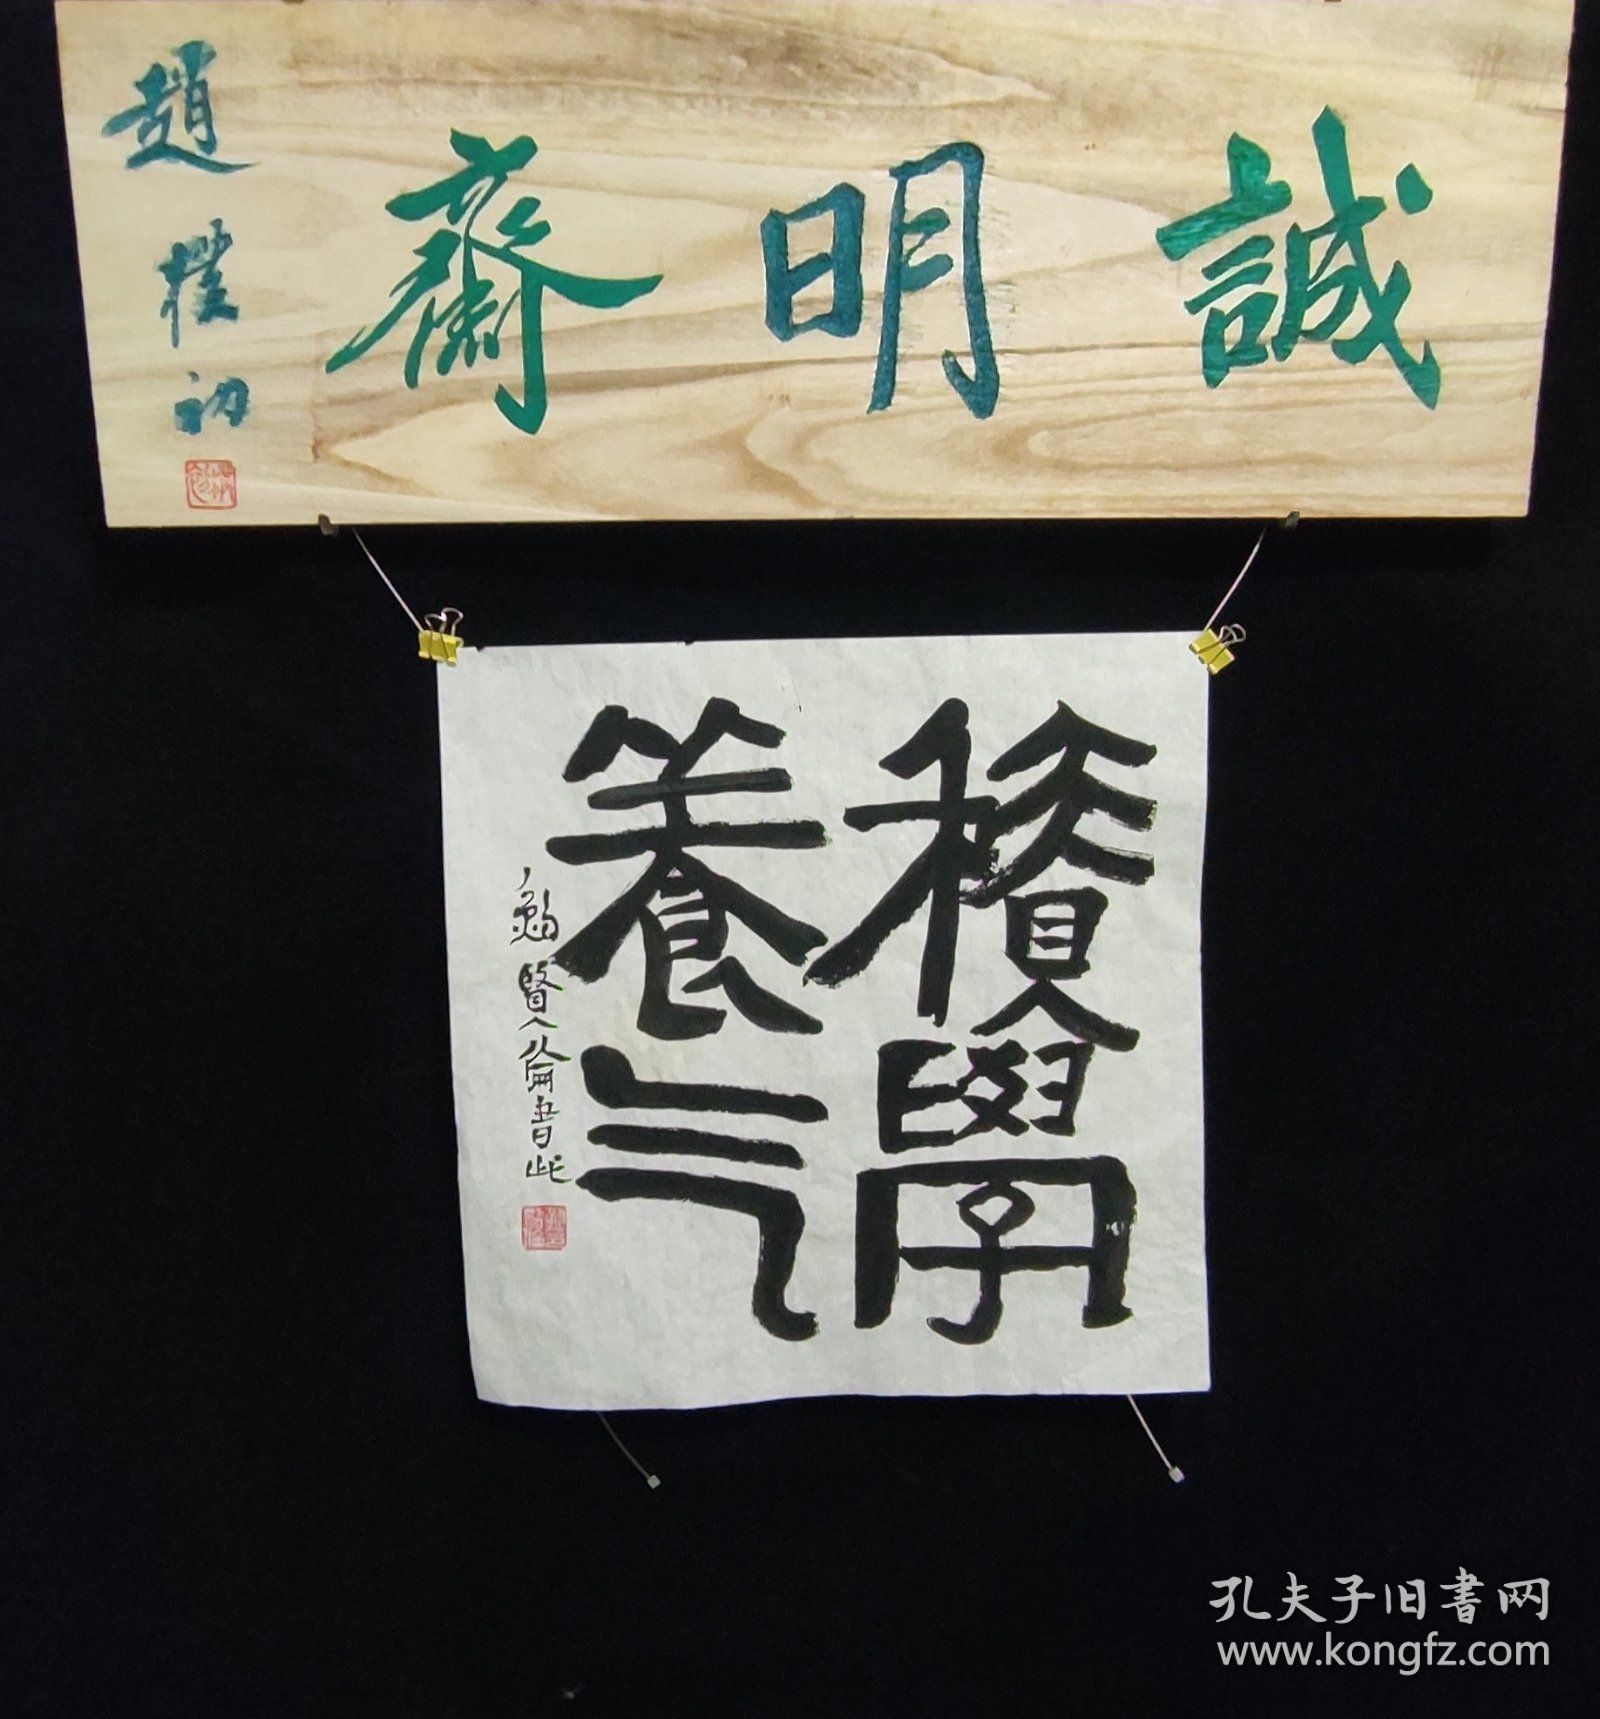 誠明齋
趙樸初
積學
養气
孔夫子旧書网
www.kongfz.com